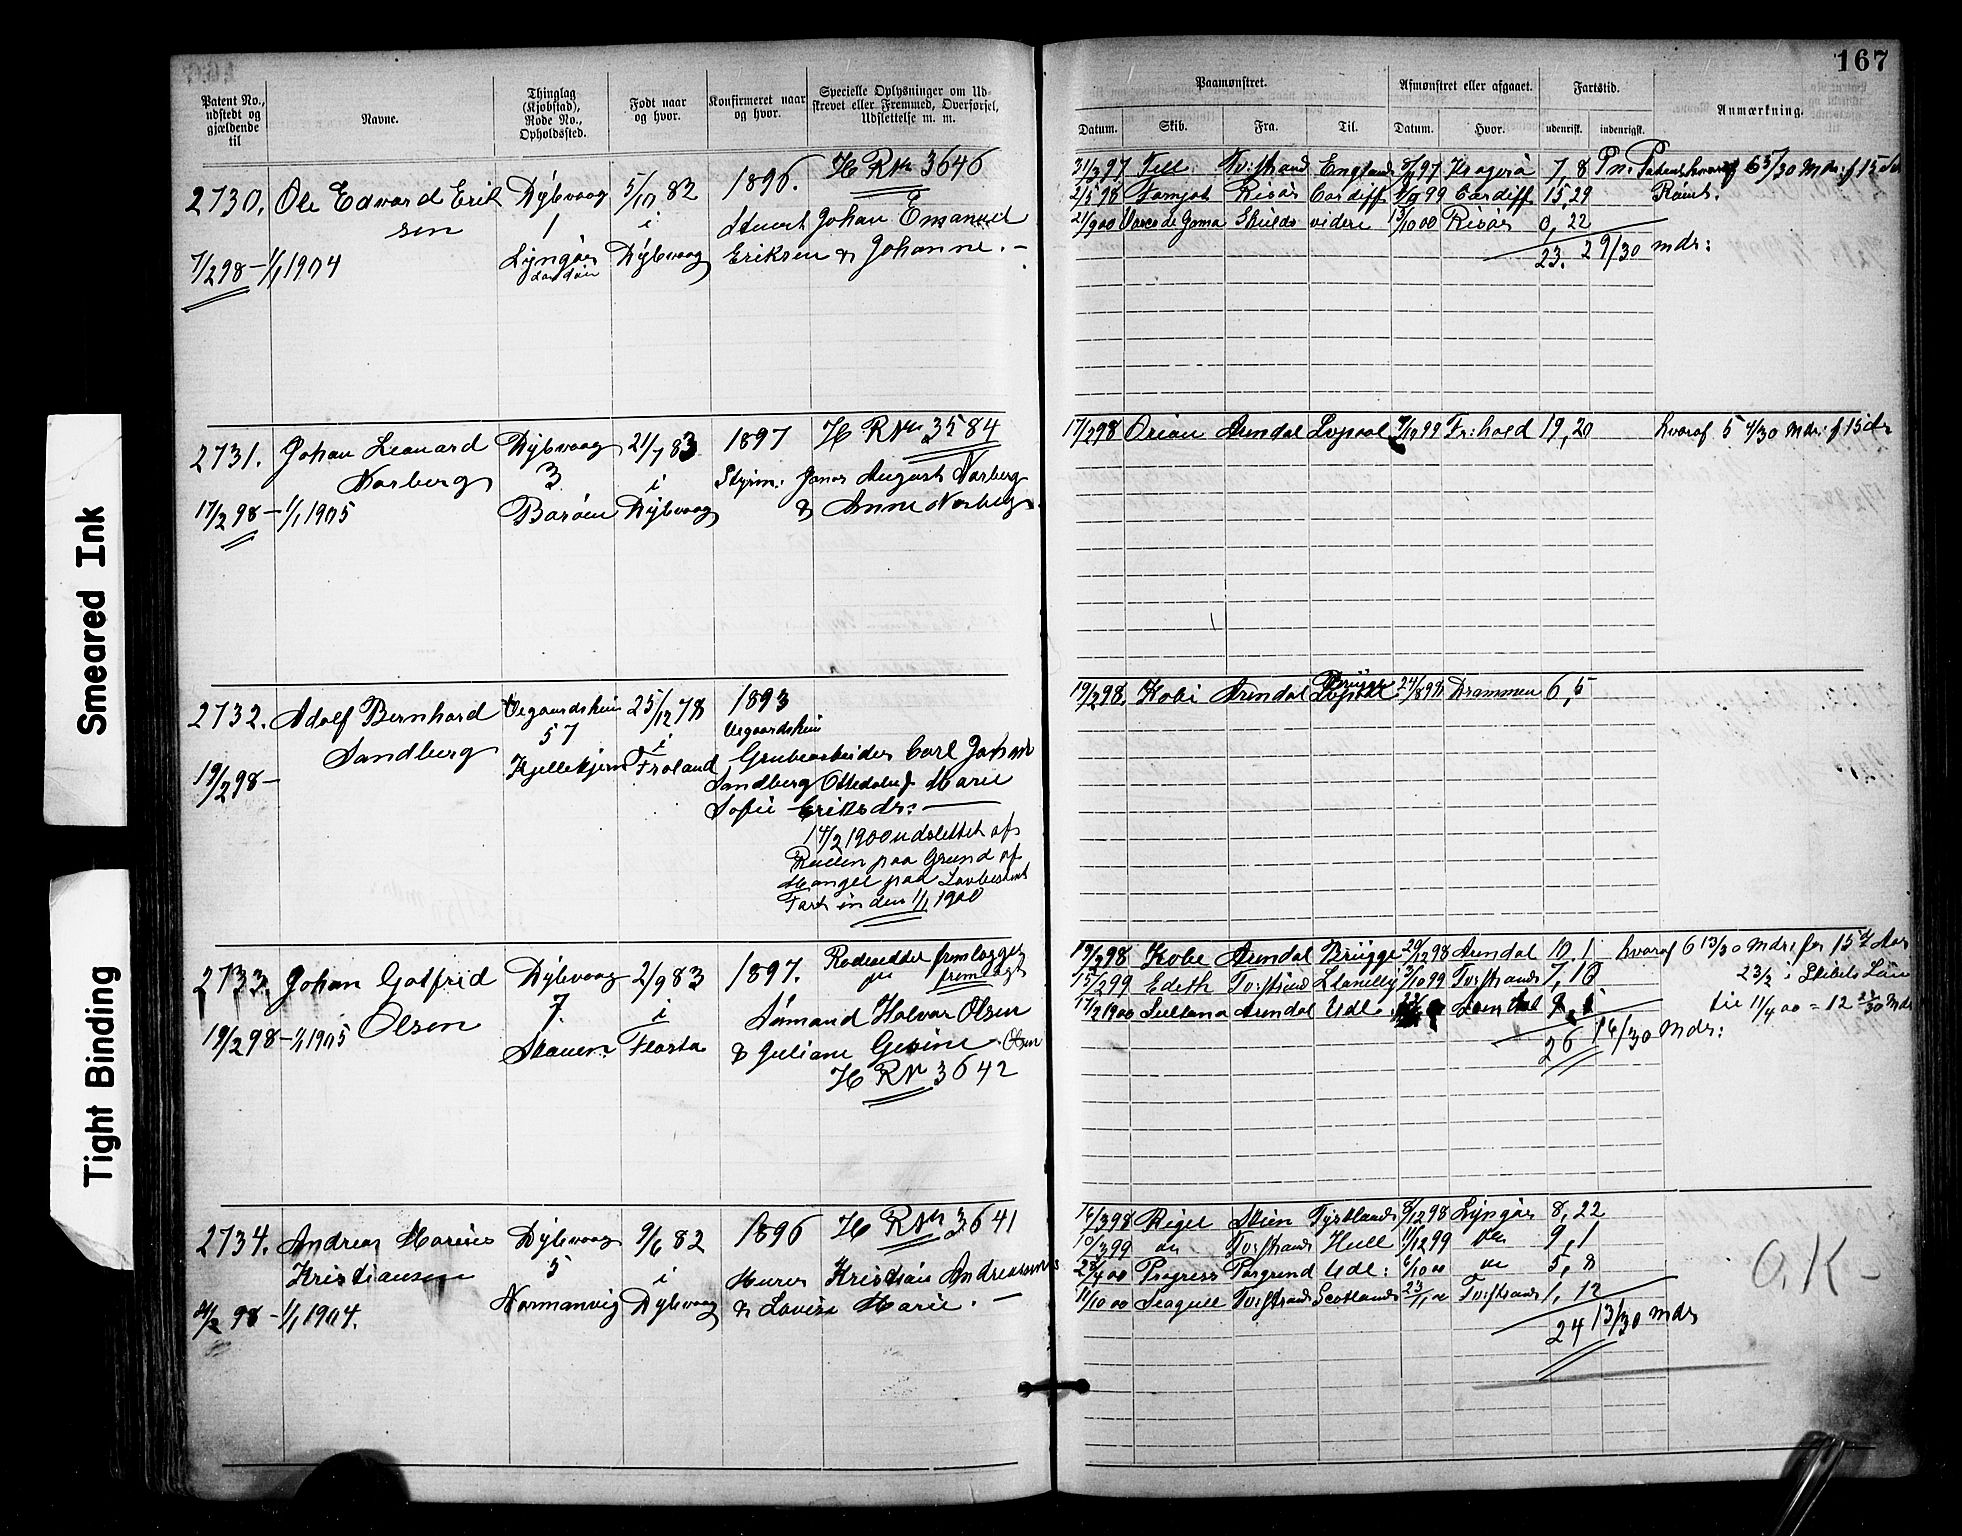 167
Smeared Ink
Tight Binding
Patent No., udstedt og gjældende til
Navne.
Thinglag (Kjøbstad), Rode No., Opholdssted.
Født naar og hvor.
Konfirmeret naar og hvor.
Specielle Oplysninger om Udskrevet eller Fremmed, Overførsel, Udslettelse m. m.
Paamønstret.
Afmønstret eller afgaaet.
Fartstid.
Anmærkning.
Datum. Skib. Fra. Til. Datum. Hvor. udenrigst. indenrigst.
2730. Ole Edvard Erik Dybvaag 5/10 82 1896. H RNr 3646
sen 1 i Stuert Johan Emanuel
7/2 98 - 1/1 1904 Lyngør Dybvaag Eriksen & Johanne. -
31/3 97 Tell Tv:strand England 97 Kragerø 7, 8
2/5 98 Risør Cardiff 99 Cardiff 15, 29
21/9 00 Vasco de Gama videre 00 Risør 0, 22
23. 29/30 mdr:
2731. Johan Leonard Dybvaag 21/7 83 1897 H RNr 3584
Norberg 3 i Styrm: Jonas August Norberg
17/2 98 - 1/1 1905 Borøen Dybvaag & Anne Norberg
17/2 98 Orion Arendal Lvpool 99 Fr:hald 19, 20 hvoraf 5 4/30 Mdr: f 15 de
2732. Adolf Bernhard Vegaardsheien 25/12 78 1893
Sandberg 57 i Vegaardsheien
19/2 98 - Froland Grubearbeider Carl Johan
Sandberg Marie
Sofie Eriksdr: -
14/2 1900 udslettet af
Rullen paa Grund af
Mangel paa Lovbestemt
Fart inden 1/1 1900
19/2 98. Kobe Arendal Brügge 24/8 98 Drammen 6, 5
2733. Johan Gotfrid Dybvaag 2/9 83 1897. Rodeseddel fremlagges
Olsen 7. i fremlagt
19/2 98 - 1/1 1905 Staven Flosta Sømand Halvor Olsen
& Juliane Gesine Olsen
H RNr 3642
19/2 98 Kobe Arendal Brügge 20/12 98 Arendal 10. 1 hvoraf 6 13/30 Mdr: for 15 de Aar
15/2 99 Edeth Tv:strand Llanelly 3/10 99 Tv:strand 7, 18
17/2 1900 Sultana Arendal Udl:
26 16/30 Mdr:
til 11/4 00 = 12 Mdr
2734. Andreas Marius Dybvaag 9/6 82 1896 H RNr 3641
Kristiansen 5 i Murer Kristian Andreassen
98 - 1/1 1904. Normanvig Dybvaag & Lovise Marie. -
16/3 98 Rigel Skien Tyskland 8/12 98 Lyngør 8, 22
10/3 99 do Tv:strand Hull 11/12 99 do 9, 1
00 Progress Porsgrund Udl: 6/10 00 do 5, 8
11/10 00 Seagull Tv:strand Scotland 23/11 00 Tv:strand 1, 12
24 13/30 Mdr
O.K -